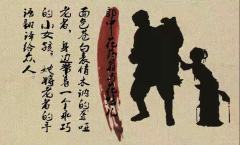 面色苍白表情木讷的聋哑
老者，身边带着一个乖巧
的小女孩，她将老者的手
语翻译给众人。